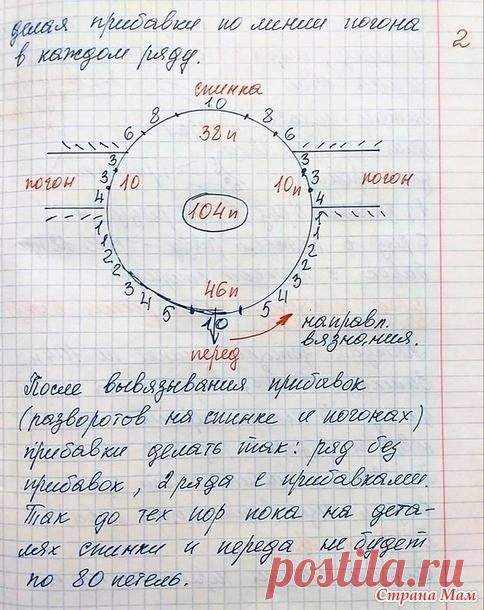 делая прибавки по линии погона
в каждом ряду.
2
спинка
10
8 8
6 38п 6
3 3
погон 3 10 10п 3 погон
4 4
104п
1 1
1 1
2 2
2 2
3 3
4 46п 4
5 5
10
перед
направл.
вязания.
После вывязывания прибавок
(разворотов на спинке и погонах)
прибавки делать так: ряд без
прибавок, 2 ряда с прибавками.
Так до тех пор пока на дета-
лях спинки и переда не будет
по 80 петель.
postila.ru
Страна Мам